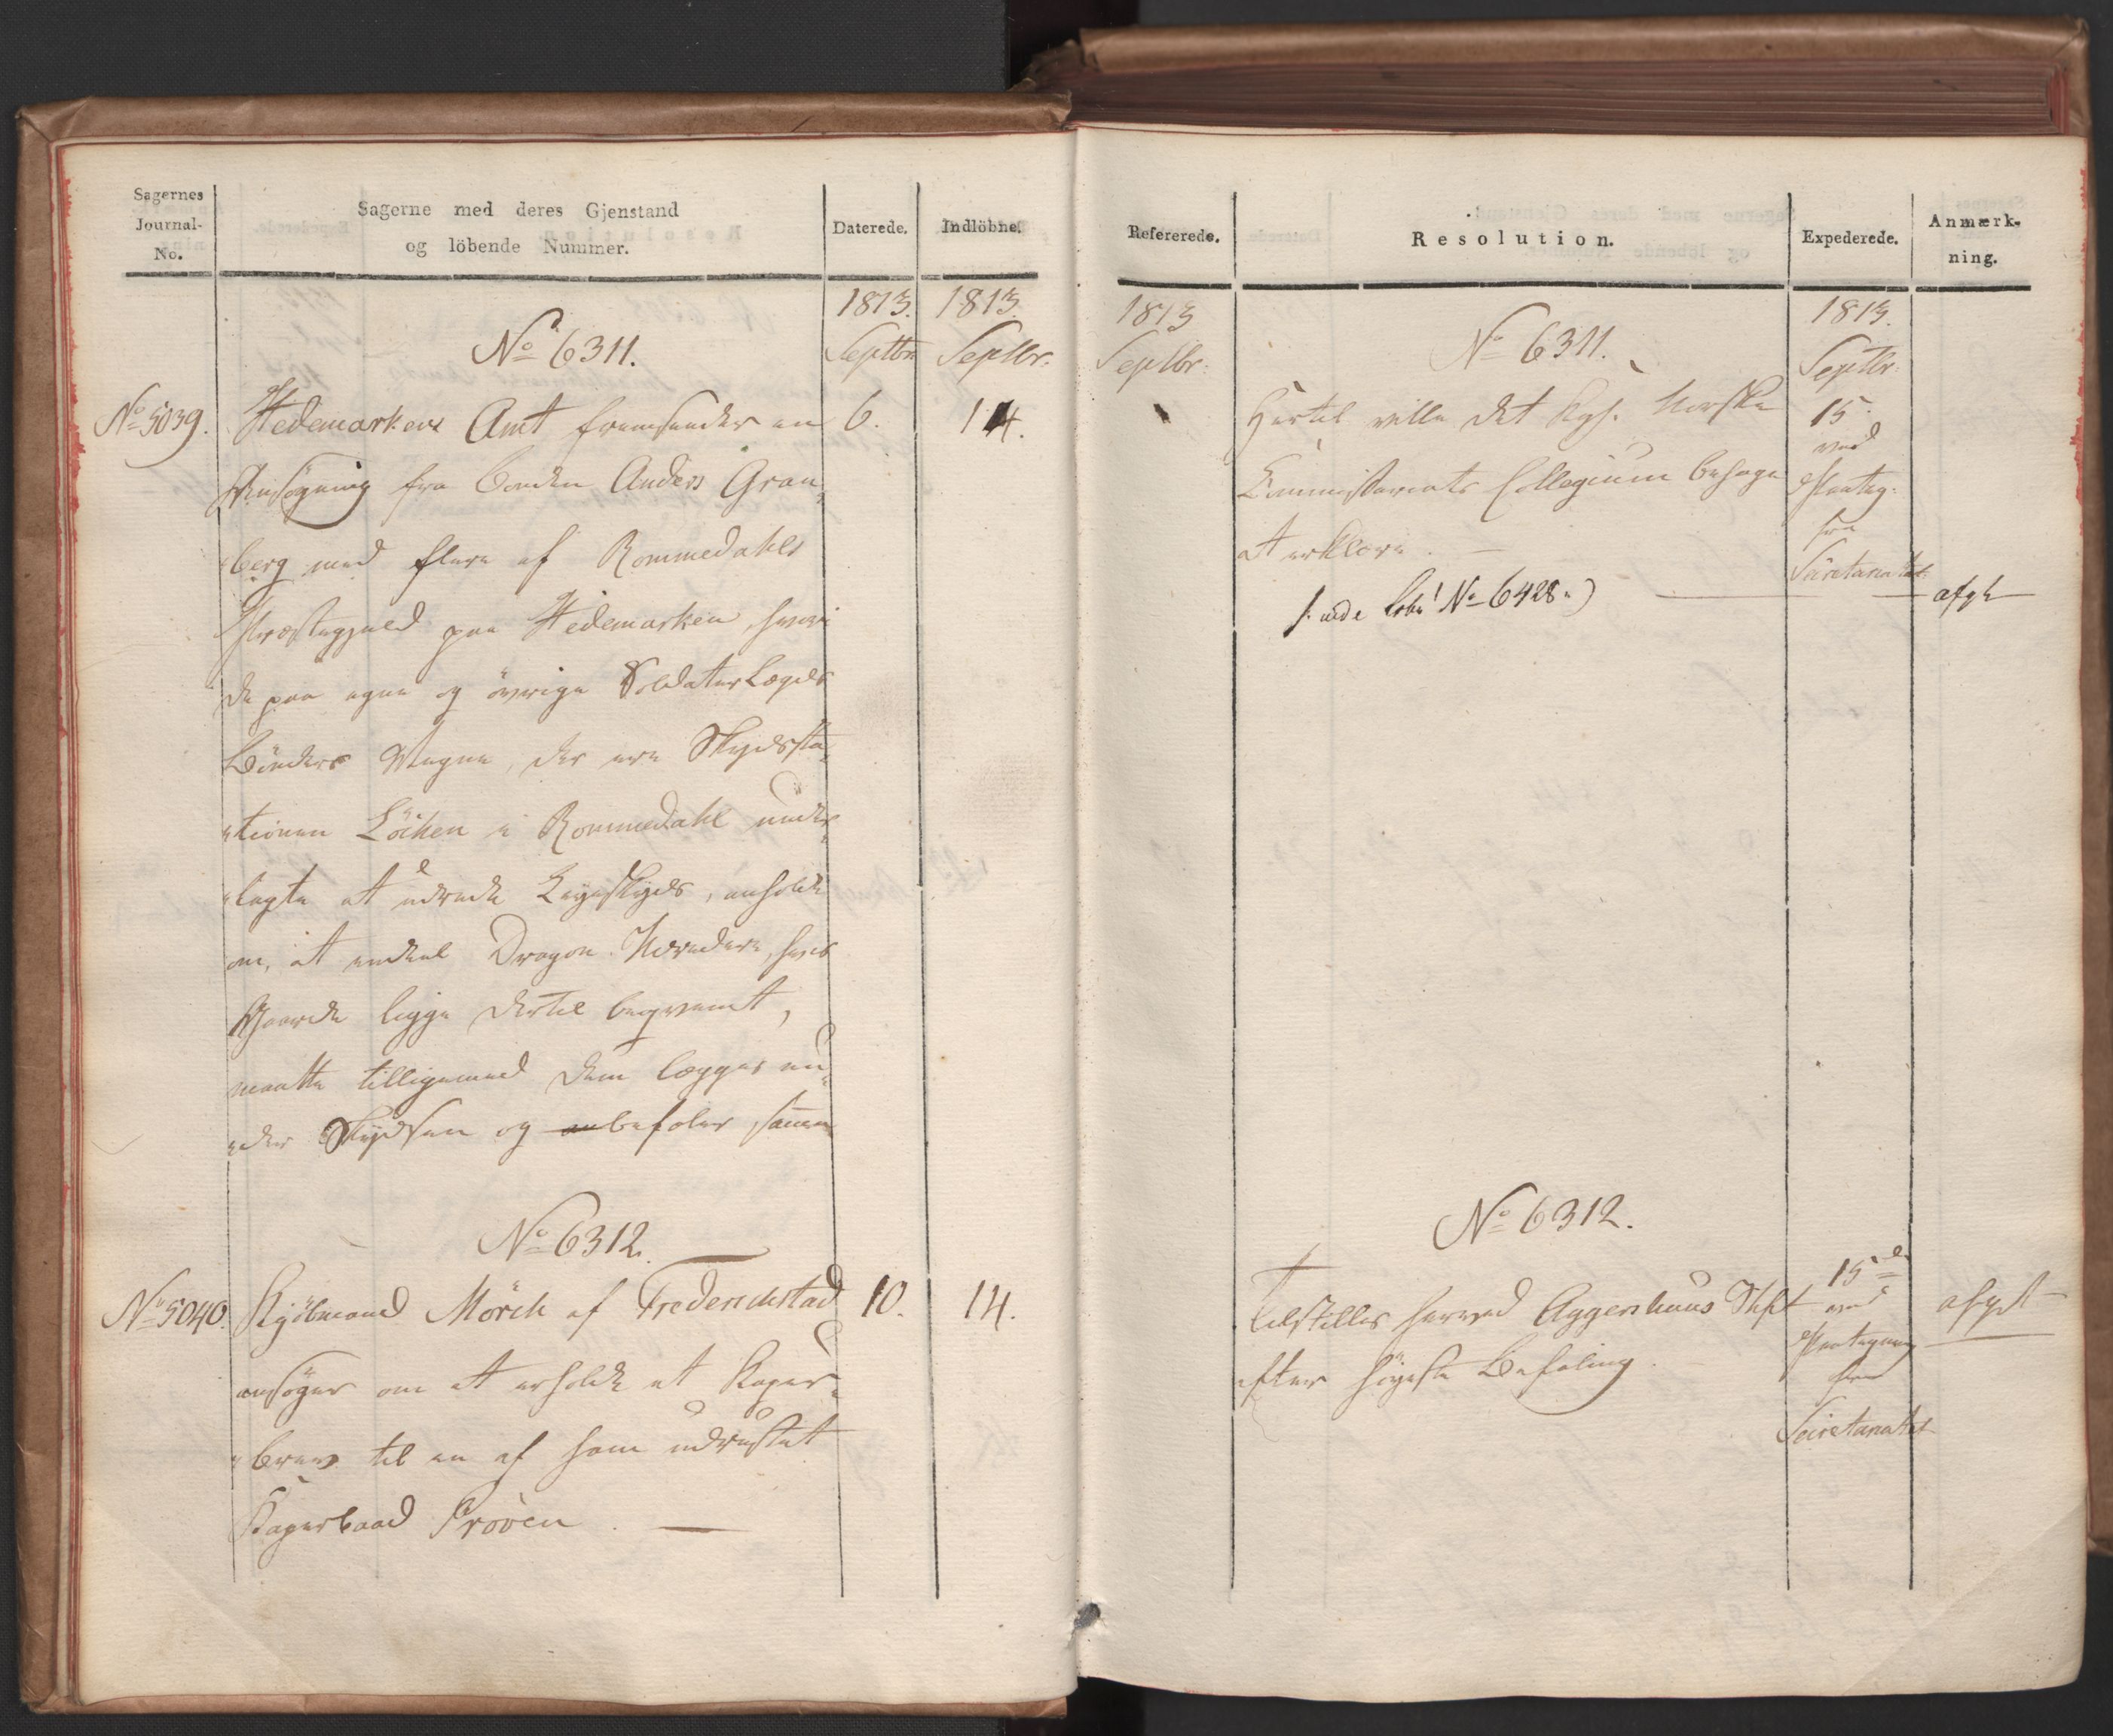 Sagernes
Journal-
No.
Sagerne med deres Gjenstand
og löbende Nummer.
Daterede.
Indlöbne.
1813.
Septbr.
1813.
Septbr.
No 6311.
No 5039.
Hedemarkens Amt fremsender en
6.
14.
Ansøgning fra bonden Anders Gran„
„berg med flere af Rommedahls
Præstegjeld paa Hedemarken, hvori
de paa egne og øvrige Soldater Lægds
Bönders Vegne, der ere Skydssta„
„tionen Löcken i Rommedahl under„
„lagte at udrede Leyeskyds, anholde
om, at endeel Dragon Udredere, hvis
Gaarde ligge dertil beqvemt,
maatte tilligemed dem lægges un„
„der Skydsen og anbefaler samme
No 6312.
No 5040.
Kjöbmand Mörch af Frederichstad
10.
14.
ansöger om at erholde et Kaper„
„brev til en af ham udrustet
Kaperbaad Pröven. —
Refererede.
Resolution.
Expederede.
Anmærk-
ning.
1813
Septbr.
1813.
Septbr.
No 6311.
Hertil ville det Kgl. Norske
15.
ved
Commissariats Collegium behage
Paateg.
at erklære. —
fra
Secretariatet.
(: vide Løbe No 6428 :)
afgk
No 6312.
Tilstilles herved Aggershuus Stift
15de
ved
afgk
efter høyeste Befaling.
Paategning
fra
Secretariatet